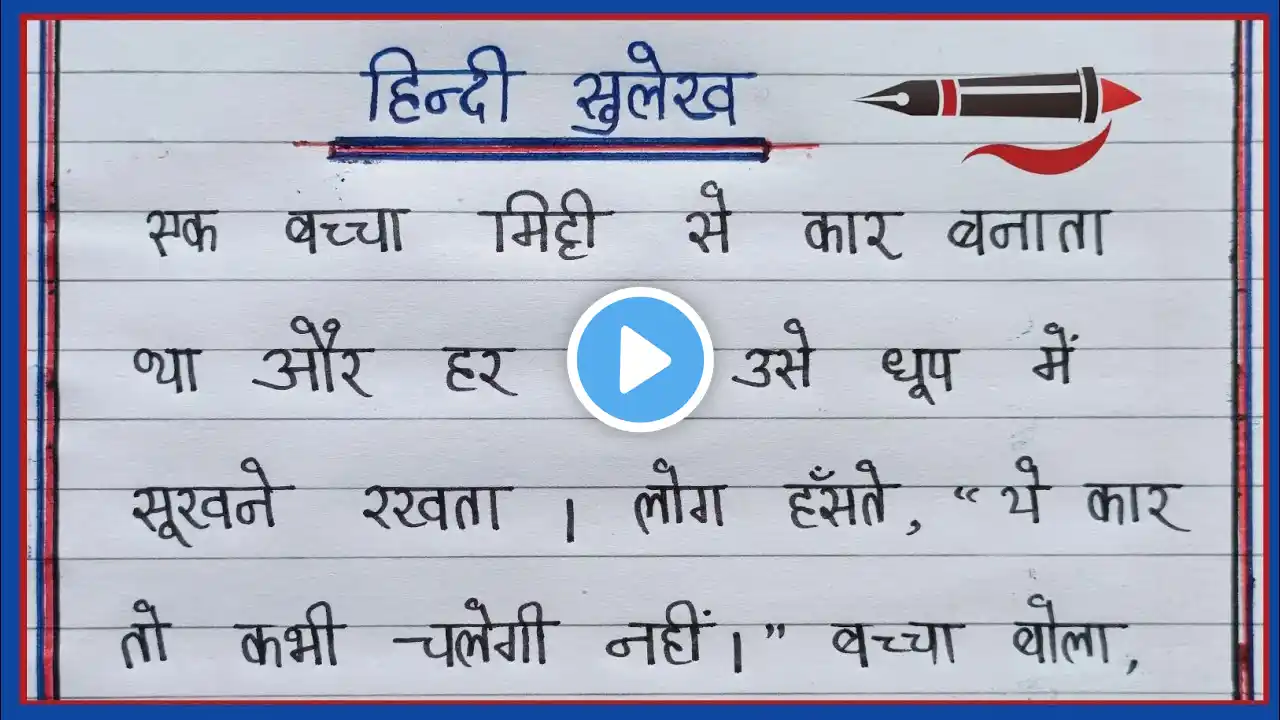 हिन्दी सुलेख
एक बच्चा मिट्टी से कार बनाता
था और हर उसे धूप में
सूखने रखता । लोग हँसते, “ ये कार
तो कभी चलेगी नहीं। ” बच्चा बोला,